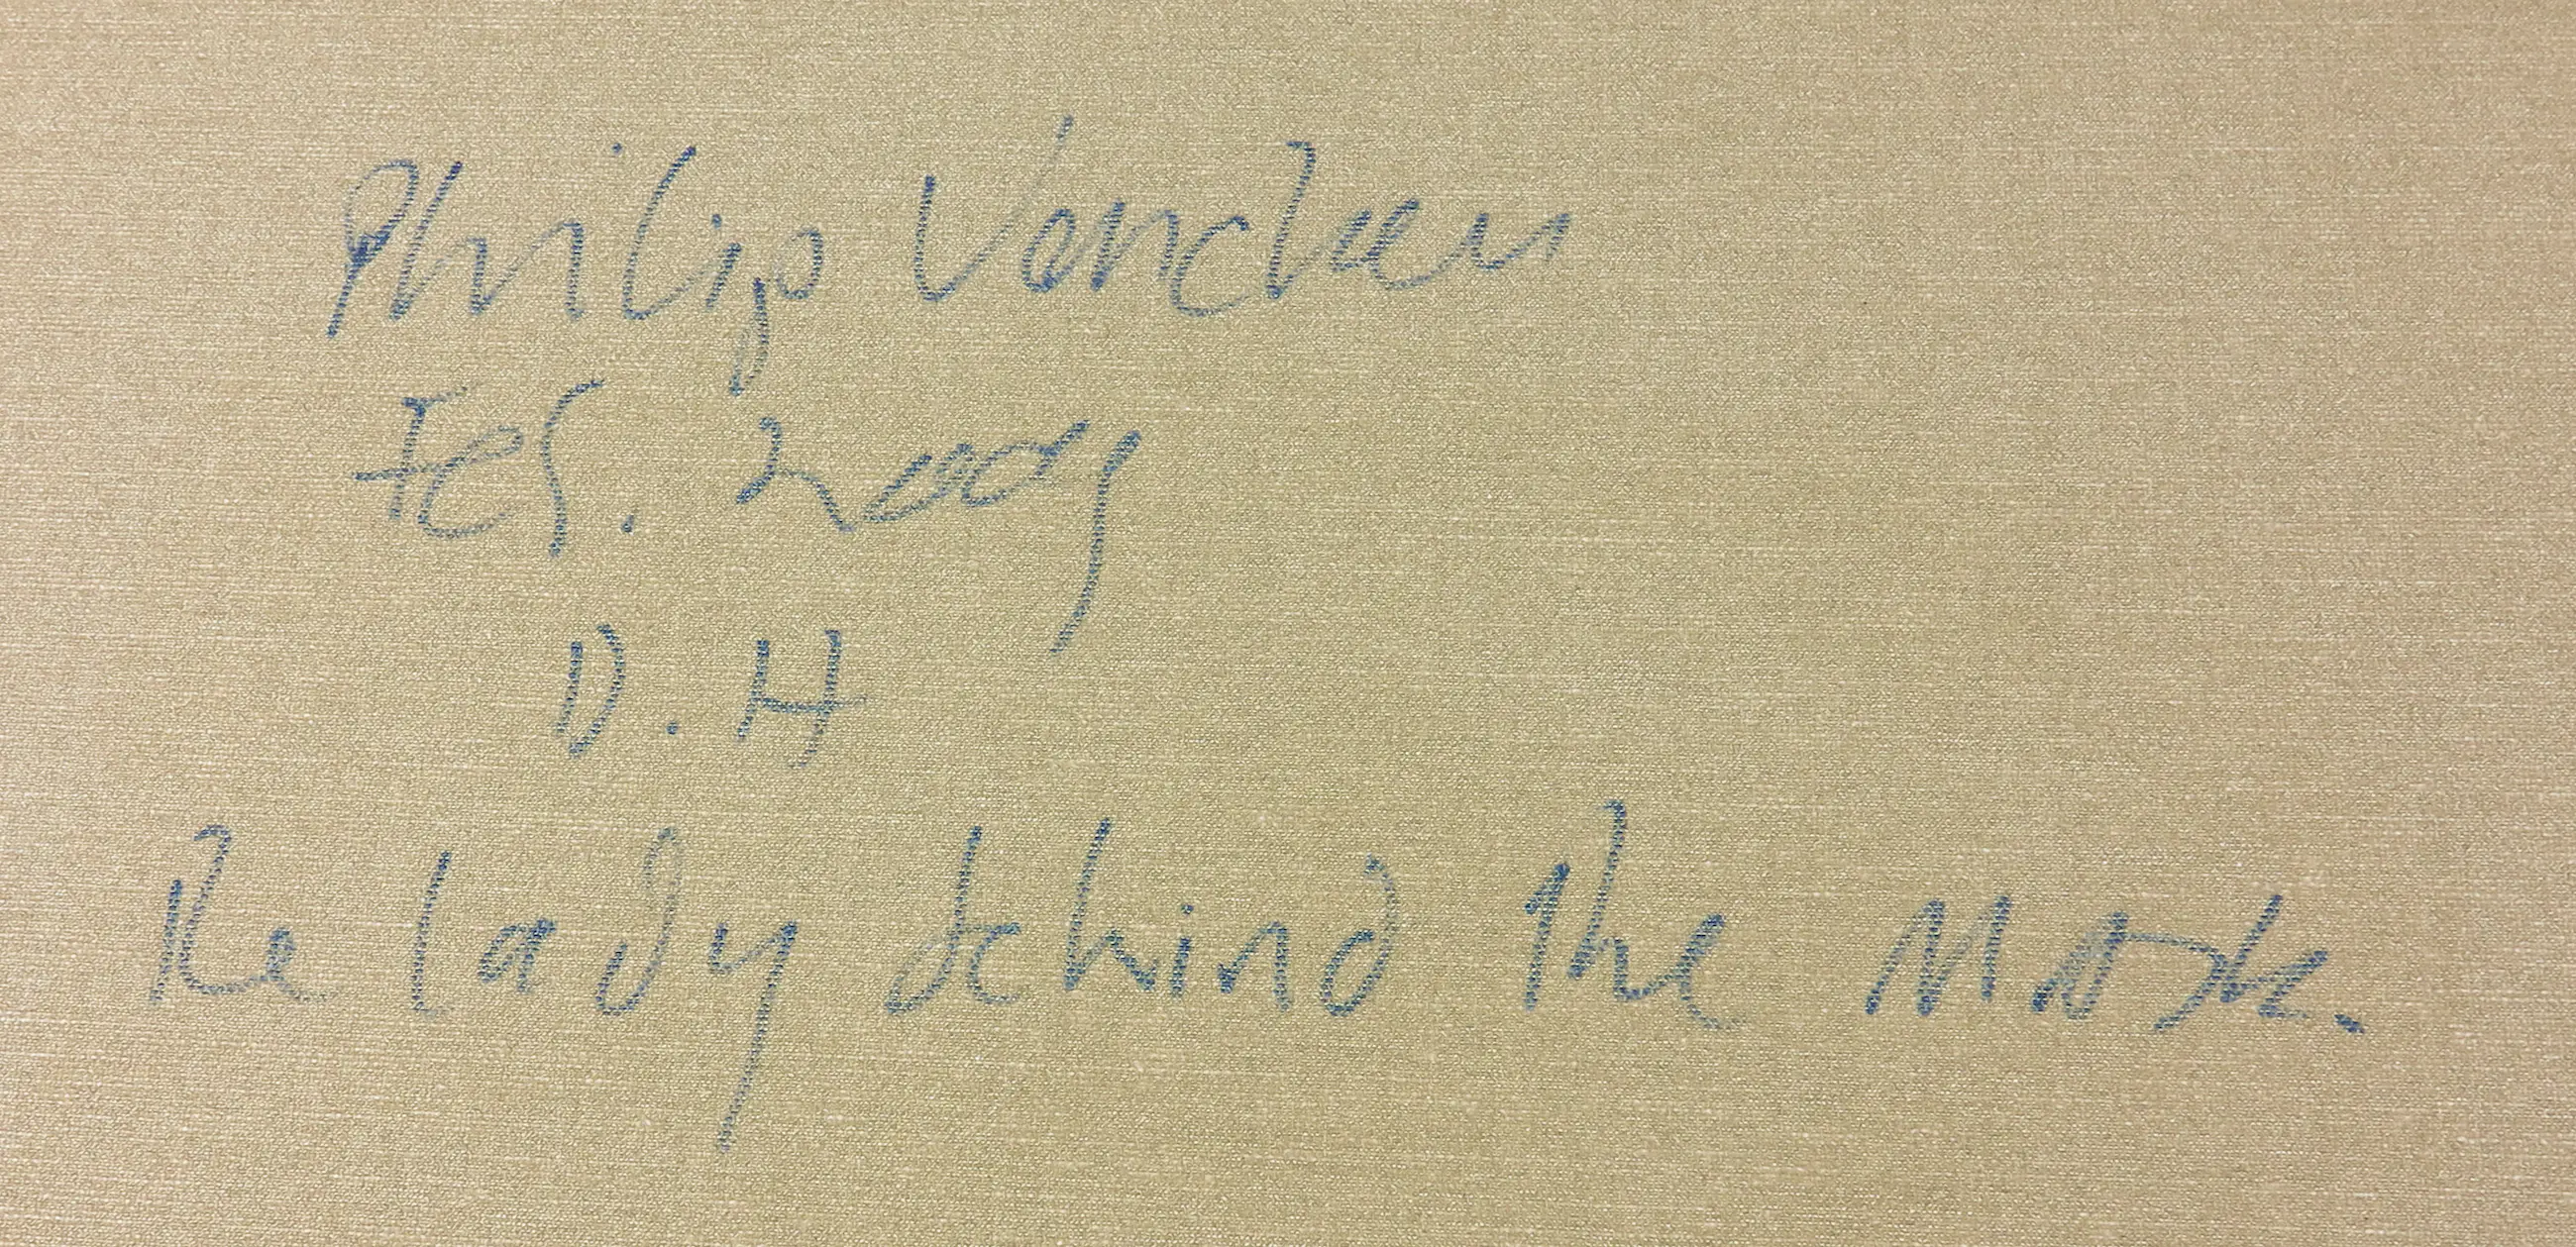 Philip Vencken
Feb. 2009
D.H
The lady behind the Mask.